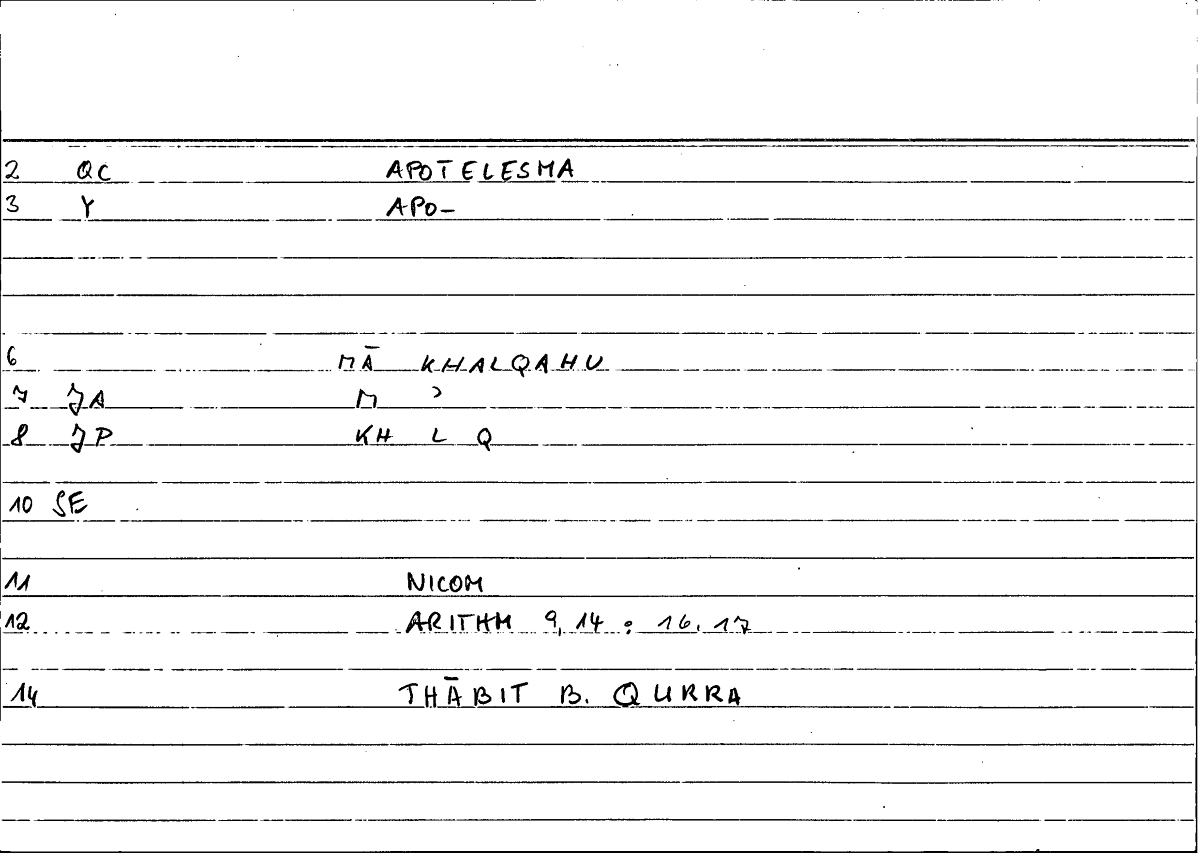 2 QC APOTELESMA
3 Y APO-
6 MĀ KHALQAHU
7 JA M ʾ
8 JP KH L Q
10 SE
11 NICOM
12 ARITHM 9,14 : 16.17
14 THĀBIT B. QURRA